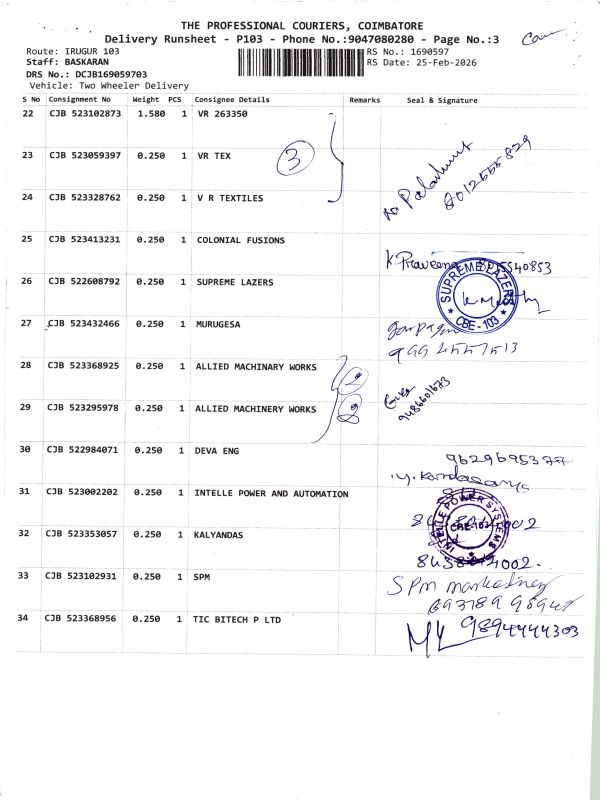 THE PROFESSIONAL COURIERS, COIMBATORE
Delivery Runsheet - P103 - Phone No.:9047080280 - Page No.:3
Route: IRUGUR 103
RS No.: 1690597
Staff: BASKARAN
RS Date: 25-Feb-2026
DRS No.: DCJB169059703
Vehicle: Two Wheeler Delivery
S No Consignment No Weight PCS Consignee Details Remarks Seal & Signature
22 CJB 523102873 1.580 1 VR 263350
23 CJB 523059397 0.250 1 VR TEX 3
8012555829
24 CJB 523328762 0.250 1 V R TEXTILES
25 CJB 523413231 0.250 1 COLONIAL FUSIONS
K Praveena
26 CJB 522608792 0.250 1 SUPREME LAZERS
SUPREME LAZERS
CBE - 103
27 CJB 523432466 0.250 1 MURUGESA
28 CJB 523368925 0.250 1 ALLIED MACHINARY WORKS
29 CJB 523295978 0.250 1 ALLIED MACHINERY WORKS
30 CJB 522984071 0.250 1 DEVA ENG
9629695377
31 CJB 523002202 0.250 1 INTELLE POWER AND AUTOMATION
INTELLE POWER SYSTEMS
CBE-103
32 CJB 523353057 0.250 1 KALYANDAS
33 CJB 523102931 0.250 1 SPM
SPM marketing
34 CJB 523368956 0.250 1 TIC BITECH P LTD
9894444303